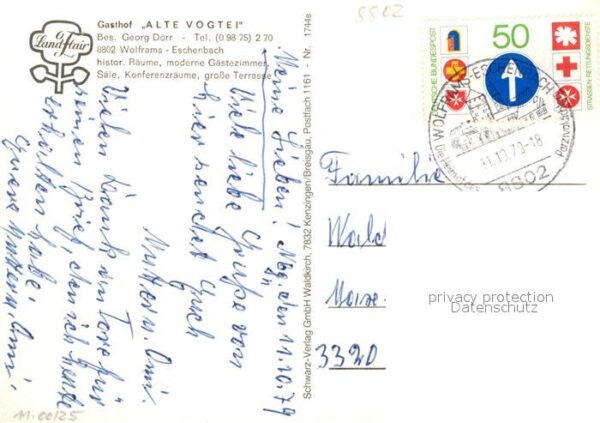 Gasthof „ALTE VOGTEI"
Bes. Georg Dörr - Tel. (0 98 75) 2 70
8802 Wolframs - Eschenbach
histor. Räume, moderne Gästezimmer
Säle, Konferenzräume, große Terrasse
Landflair
8802
DEUTSCHE BUNDESPOST
50
STRASSEN-RETTUNGSDIENSTE
WOLFRAMS-ESCHENBACH
Die Heimat des
Parzival
11.10.79-18
8802
Meine Lieben! den 11.10.79
Viele liebe Grüße von
hier sendet Euch
Mutter u. Omi.
Vielen Dank an
seinen Brief, den ich heute
erhalten habe.
Eure Mutter u. Omi.
Schwarz-Verlag GmbH Waldkirch, 7832 Kenzingen/Breisgau, Postfach 1161 - Nr. 1744s
Familie
3320
privacy protection
Datenschutz
11.00/25